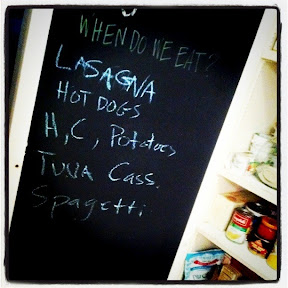 WHEN DO WE EAT?
LASAGNA
HOT DOGS
H, C, Potatoes
TUNA CASS.
Spagetti